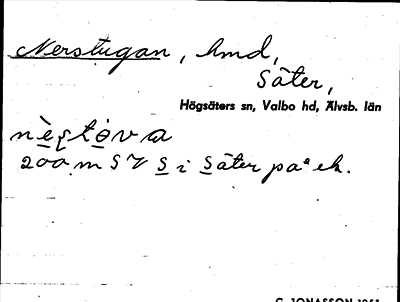 Nerstugan, hmd,
Säter,
Högsäters sn, Valbo hd, Älvsb. län
200 m SV S i Säter på ek.
G. JONASSON 1951